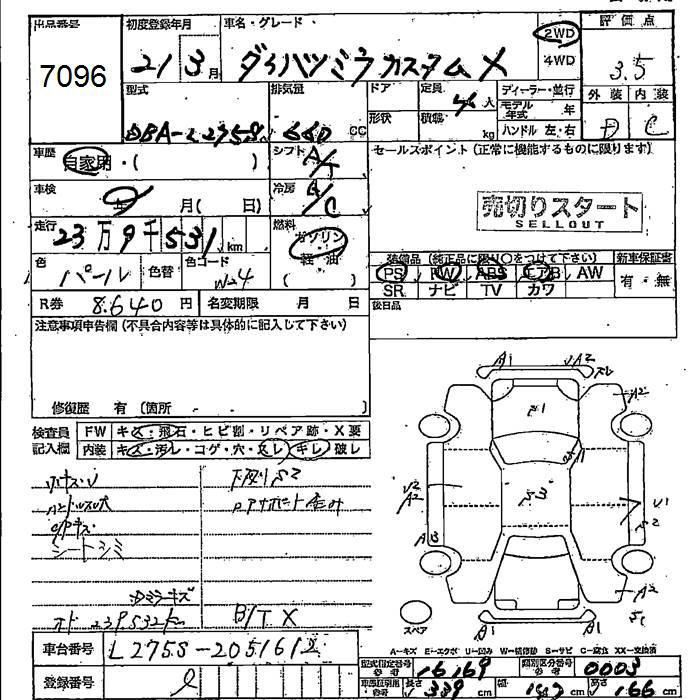 出品番号
7096
初度登録年月
21 3 月
車名・グレード
ダイハツミラカスタム X
2WD
4WD
評価点
3.5
外装 内装
D C
型式
DBA-L275S
排気量
660 CC
ドア
形状
定員 4 人
積載 kg
ディーラー・並行
モデル年式 年
ハンドル 左・右
車歴
自家用・( )
シフト
A/T
セールスポイント (正常に機能するものに限ります)
車検
年 月( 日)
冷房
A/C
売切りスタート
SELLOUT
走行
23万9千531 km
燃料
ガソリン
軽油
( )
色
パール
色替
色コード
W24
装備品 (純正品に限り○をつけて下さい)
PS PW ABS エアB AW
SR ナビ TV カワ
新車保証書
有・無
R券 8.640 円
名変期限 月 日
後日品
注意事項申告欄 (不具合内容等は具体的に記入して下さい)
修復歴 有 〔箇所 〕
検査員記入欄
FW キズ・飛石・ヒビ割・リペア跡・X要
内装 キズ・汚レ・コゲ・穴・スレ・キレ・破レ
下廻りS2
シートシミ
ドアミラーキズ
オド 239532km
B/T X
A1 A2
A2
A1
S3
U2
A2
U1
A1 A2
スペア
A-キズ E-エクボ U-凹み W-補修跡 S-サビ C-腐食 XX-交換済
車台番号 L275S-2051612
登録番号
型式指定番号 参考 16169
類別区分番号 参考 0003
長さ 339 cm
幅 147 cm
高さ 166 cm